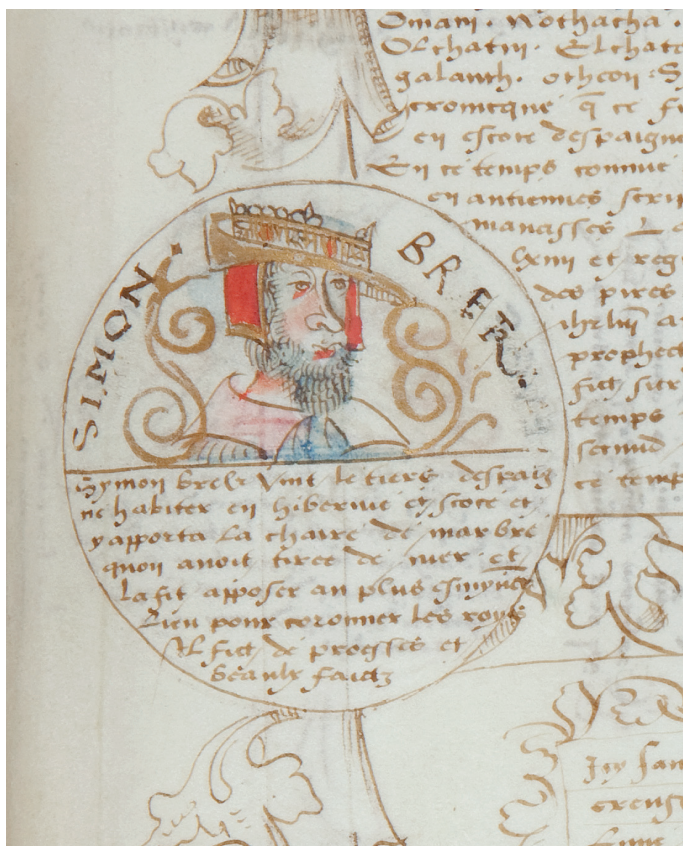 Omani. Nothacha.
Olchatin. Elchato
galanth. otheon. S
cronicque q̄ ce f
en escoce despaigne
En ce temps connut
en antiennes scrip
manasses
lxiiii et reg
des pires
ihrlm̄ a
prophect
fict
temps
second
ce temp
SIMON. BREK.
Symon brek vint le tiers despaig
ne habiter en hibernie escoce et
y apporta la chaire de marbre
quon avoit tiree de mer et
la fit apposer au plus
lieu pour coronner les roys
Il fict de proesses et
beaulx faictz